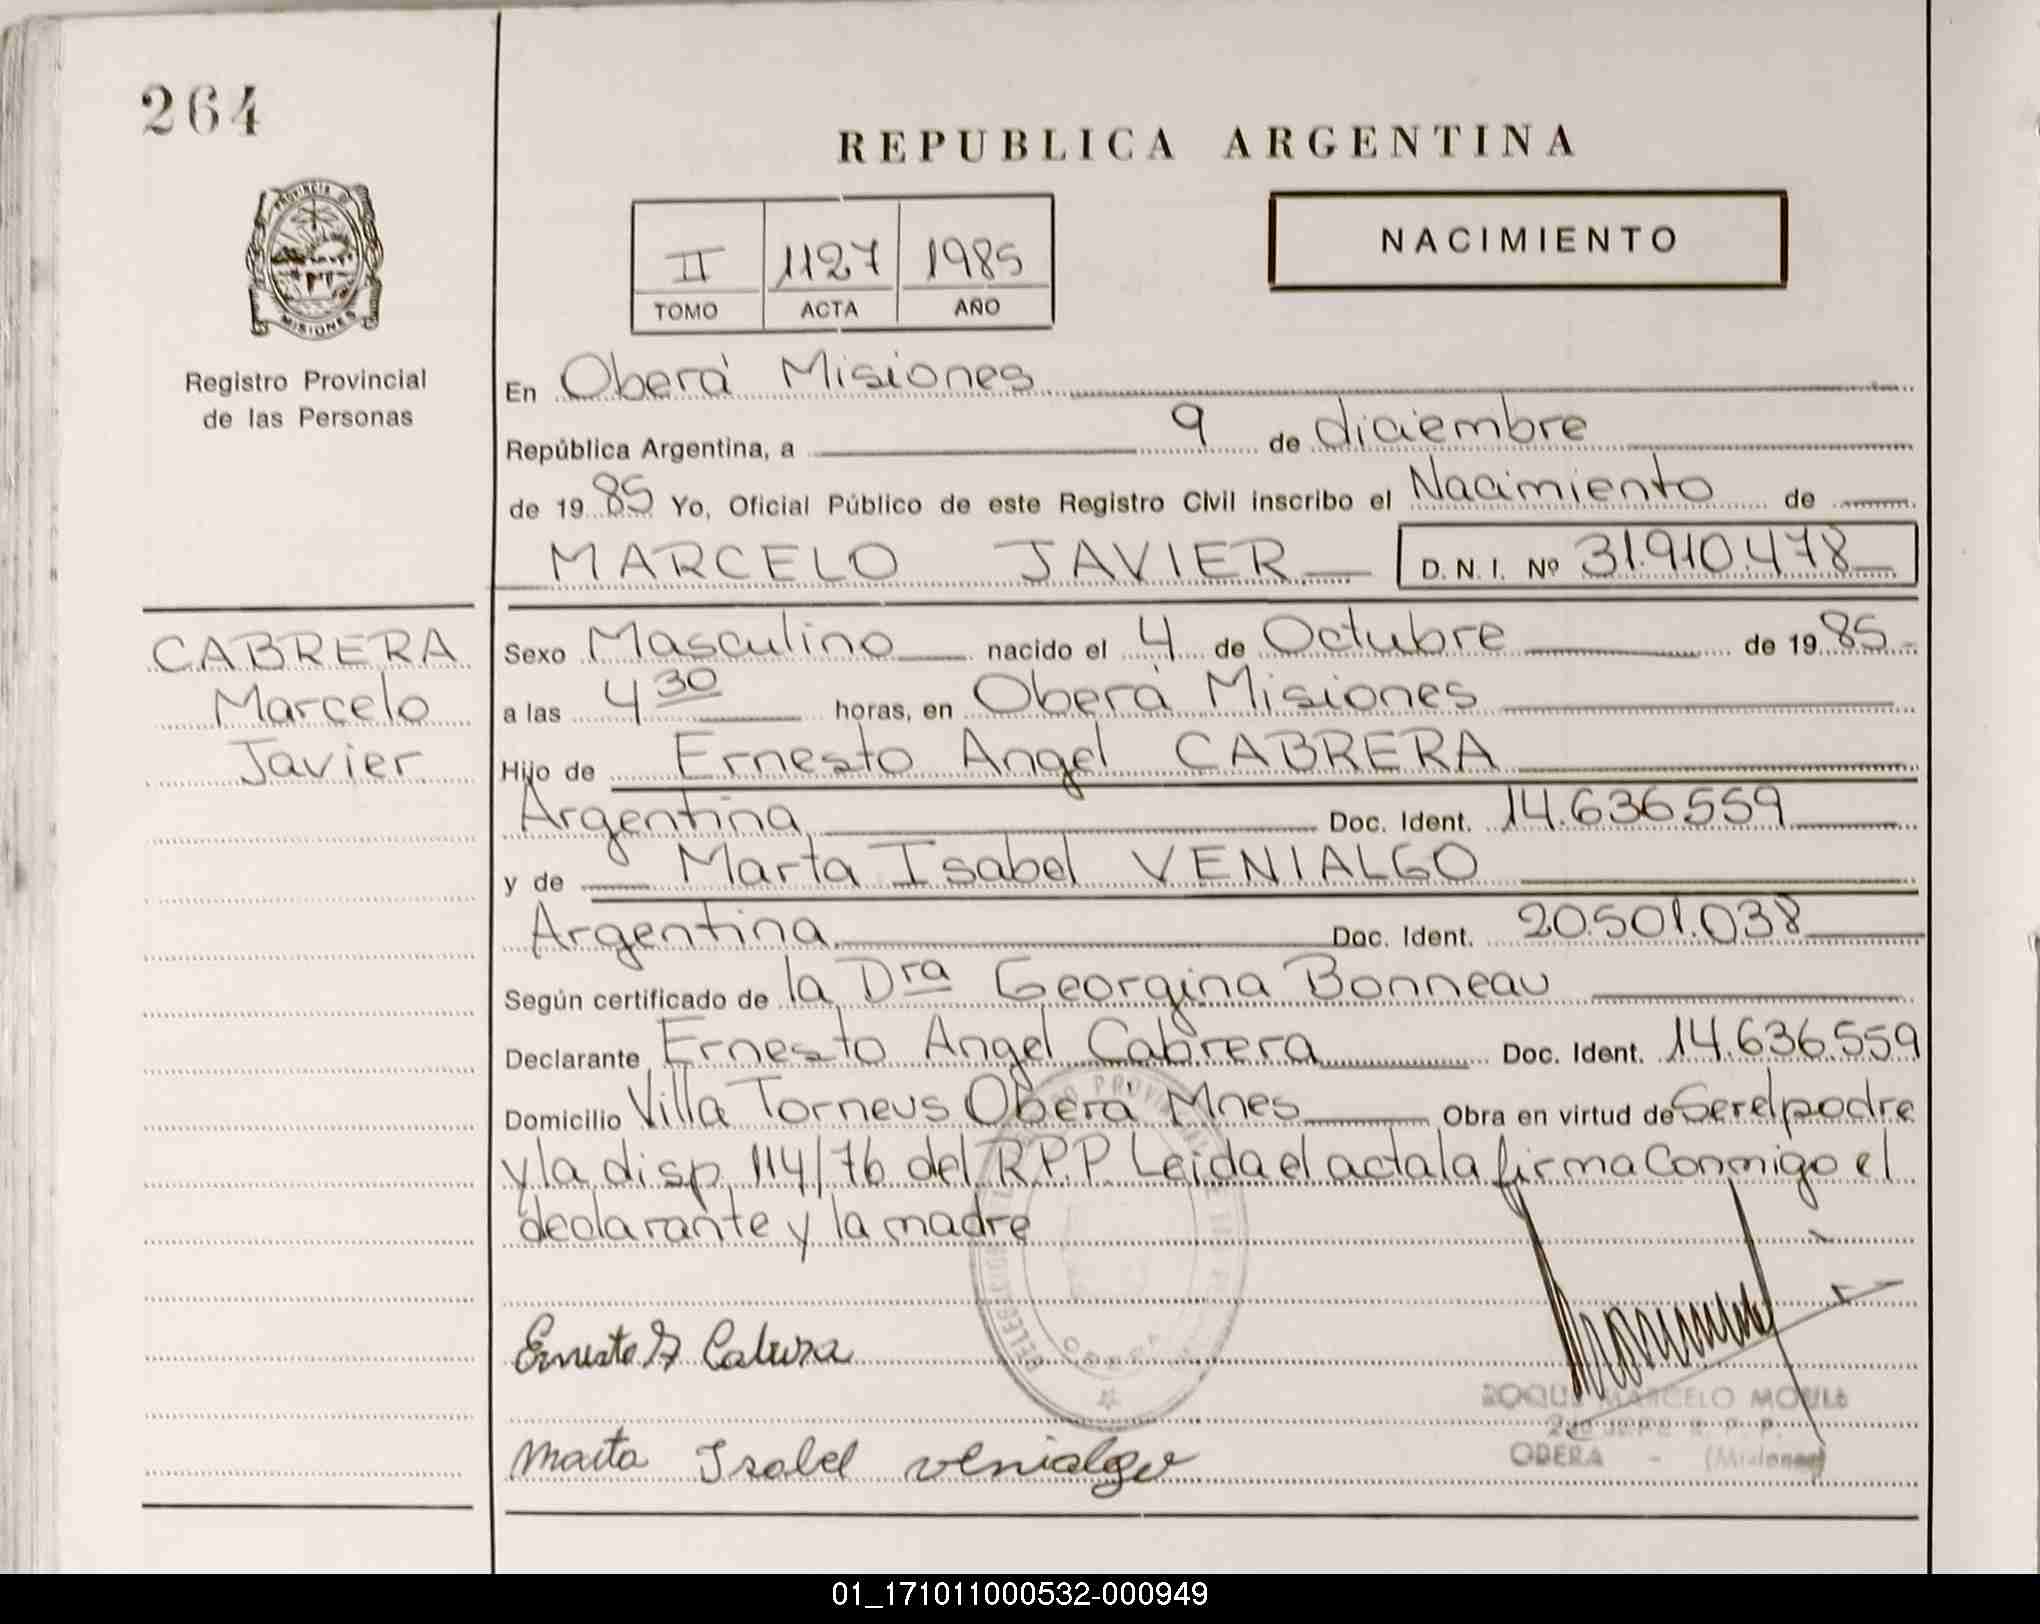 264
REPUBLICA ARGENTINA
II 1127 1985
TOMO ACTA AÑO
NACIMIENTO
PROVINCIA DE
MISIONES
Registro Provincial
de las Personas
En Oberá Misiones
República Argentina, a 9 de diciembre
de 1985 Yo, Oficial Público de este Registro Civil inscribo el Nacimiento de
MARCELO JAVIER D.N.I. Nº 31.910.478
CABRERA
Marcelo
Javier
Sexo Masculino nacido el 4 de Octubre de 1985
a las 4 30 horas, en Oberá Misiones
Hijo de Ernesto Angel CABRERA
Argentina Doc. Ident. 14.636.559
y de Marta Isabel VENIALGO
Argentina Doc. Ident. 20.501.038
Según certificado de la Dra Georgina Bonneau
Declarante Ernesto Angel Cabrera Doc. Ident. 14.636.559
Domicilio Villa Torneus Oberá Mnes Obra en virtud de Ser el padre
y la disp 114/76 del R.P.P. Leida el acta la firma Conmigo el
declarante y la madre
Ernesto A Cabrera
Marta Isabel Venialgo
OBERA
MARCELO
OBERA - (Misiones)
01_171011000532-000949